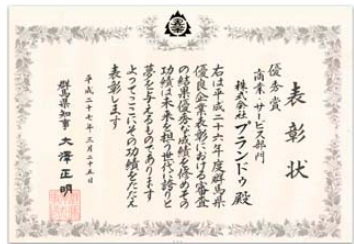 表彰状
優秀賞
商業・サービス部門
株式会社プランドゥ殿
右は平成二十六年度群馬県
優良企業表彰における審査
の結果優秀な成績を修めその
功績は未来を担う世代に誇りと
夢を与えるものであります
よってここにその功績をたたえ
表彰します
平成二十七年三月二十五日
群馬県知事 大澤正明